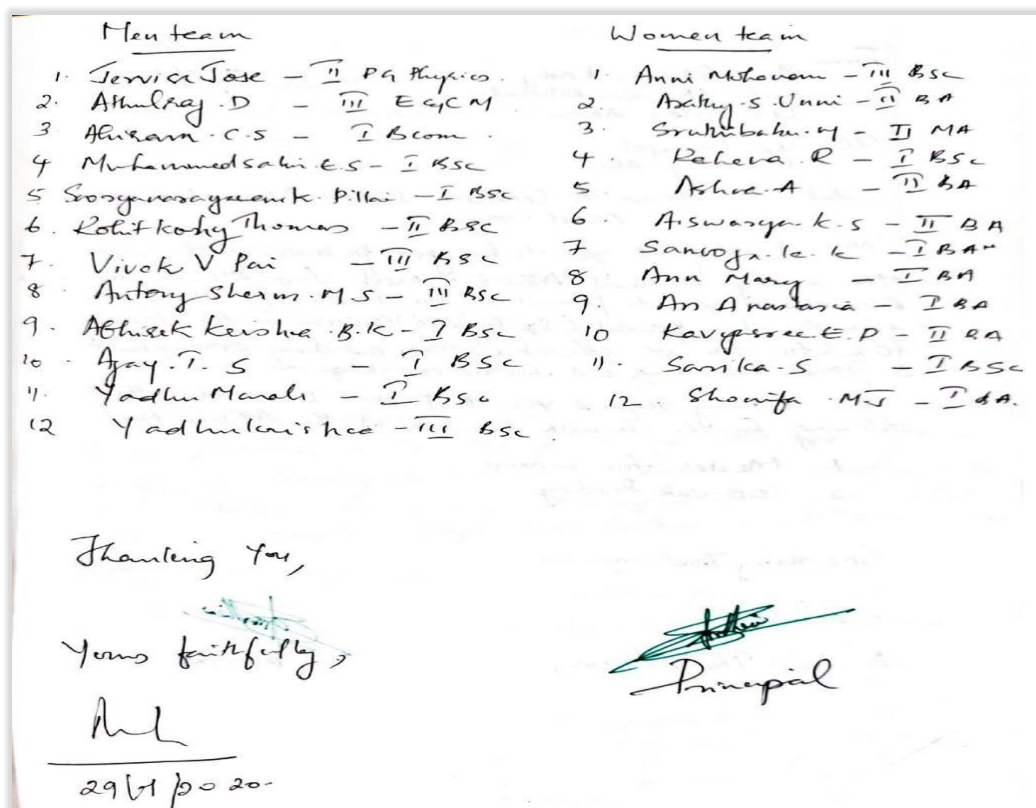 Men team
1. Jervin Jose - II PG Physics.
2. Athulraj.D - III EG CM
3 Abiram.C.S - I Bcom.
4 Muhammedsahi.E.S - I BSc
5 Pillai - I BSc
6. Rohit Koshy Thomas - II BSC
7. Vivek V Pai - III BSC
8 Antony Sherin.M.S - III BSc
9. Abhisek Krishna.B.K - I BSc
10. Ajay.T.S - I BSc
11. Yadhu - I BSc
12 Yadhukrishna - III BSc.
Women team
1 Anni - III BSc
2. .S.Unni - II BA
3. Sruthibabu.M - II MA
4. R - I BSc
5 A - II BA
6 Aiswarya K.S - II BA
7 K.K - I BA
8 Ann Mary - I BA
9. An Anastasia - I BA
10 Kavyasree E.P - II BA
11. Sarika.S - I BSc
12. M.S - I BA.
Thanking You,
Yours faithfully,
Principal
2020